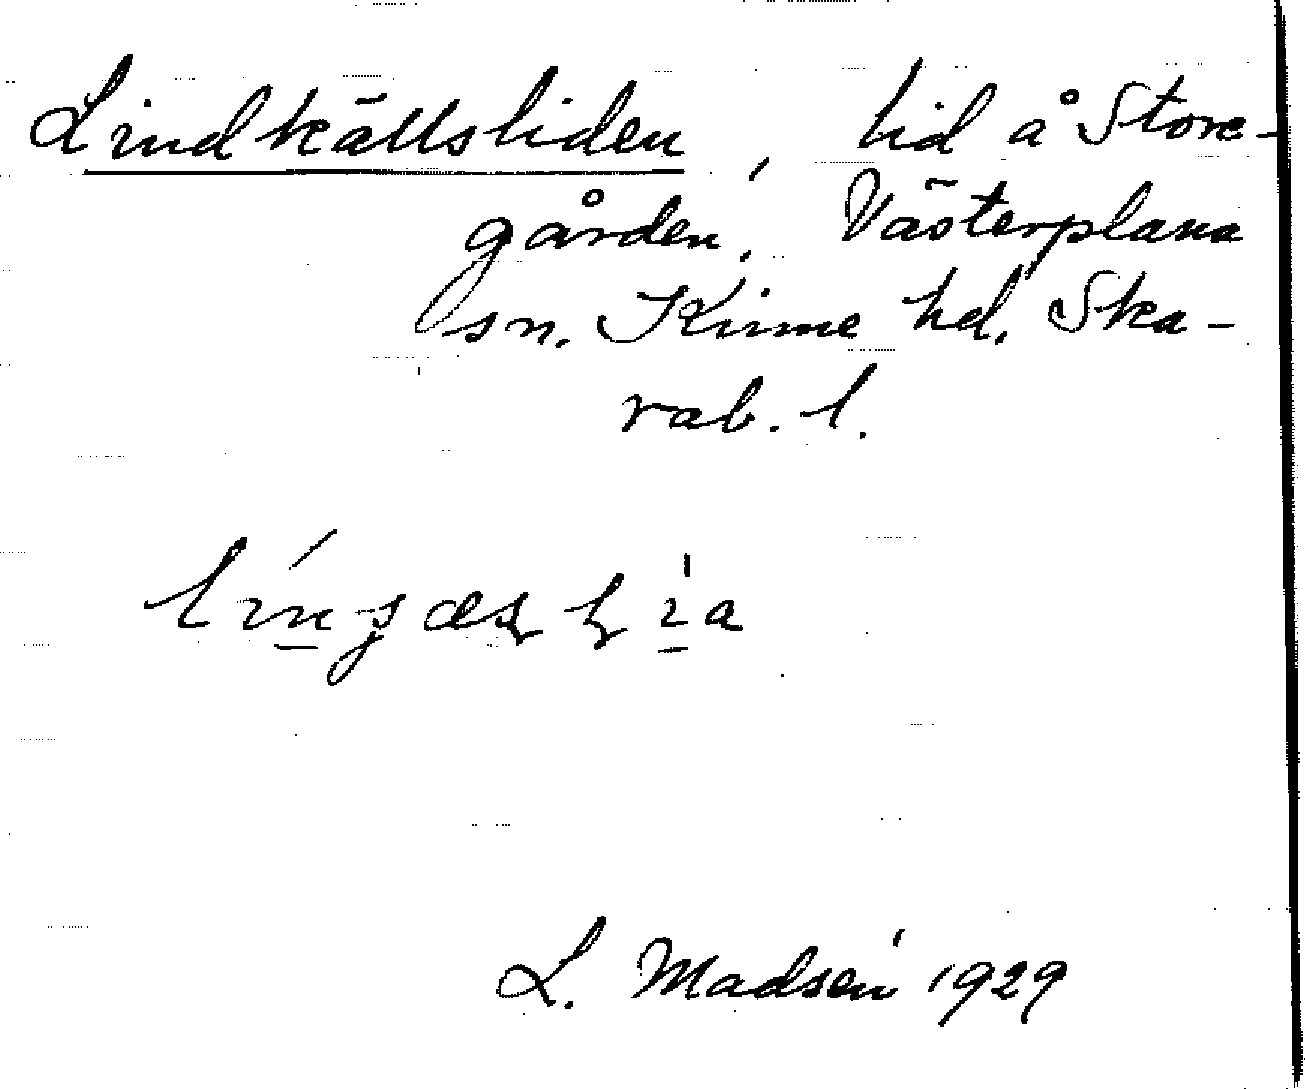 Lindkällsliden, lid å Store-
gården, Västerplana
sn. Kinne hd, Ska-
rab. l.
L. Madsén 1929